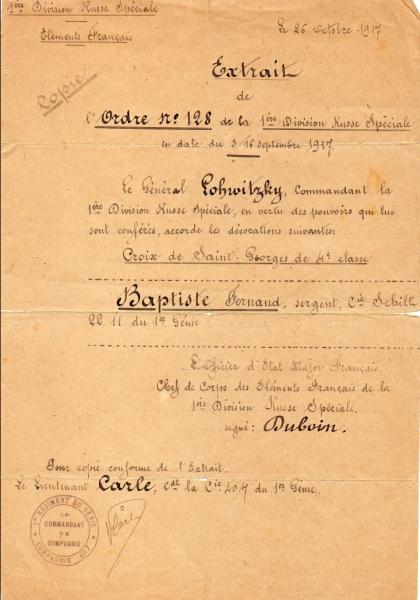 1ère Division Russe Spéciale
Eléments Français
Le 26 Octobre 1917
Copie
Extrait
de
l'Ordre n° 128 de la 1ère Division Russe Spéciale
en date du 3/16 septembre 1917.
Le Général Lohwitzky, Commandant la
1ère Division Russe Spéciale, en vertu des pouvoirs qui lui
sont conférés, accorde les décorations suivantes:
Croix de Saint-Georges de 4e classe
Baptiste Fernand, sergent, Cie
22 11 du 1er Génie
L'Officier d'Etat Major Français.
Chef de Corps des Eléments Français de la
1ère Division Russe Spéciale.
signé: Duboin.
Pour copie conforme de l'Extrait.
Le Lieutenant Carle, Cdt la Cie 40/7 du 1er Génie.
1er REGIMENT DU GENIE
LE
COMMANDANT
DE
COMPAGNIE
COMPAGNIE 40/7